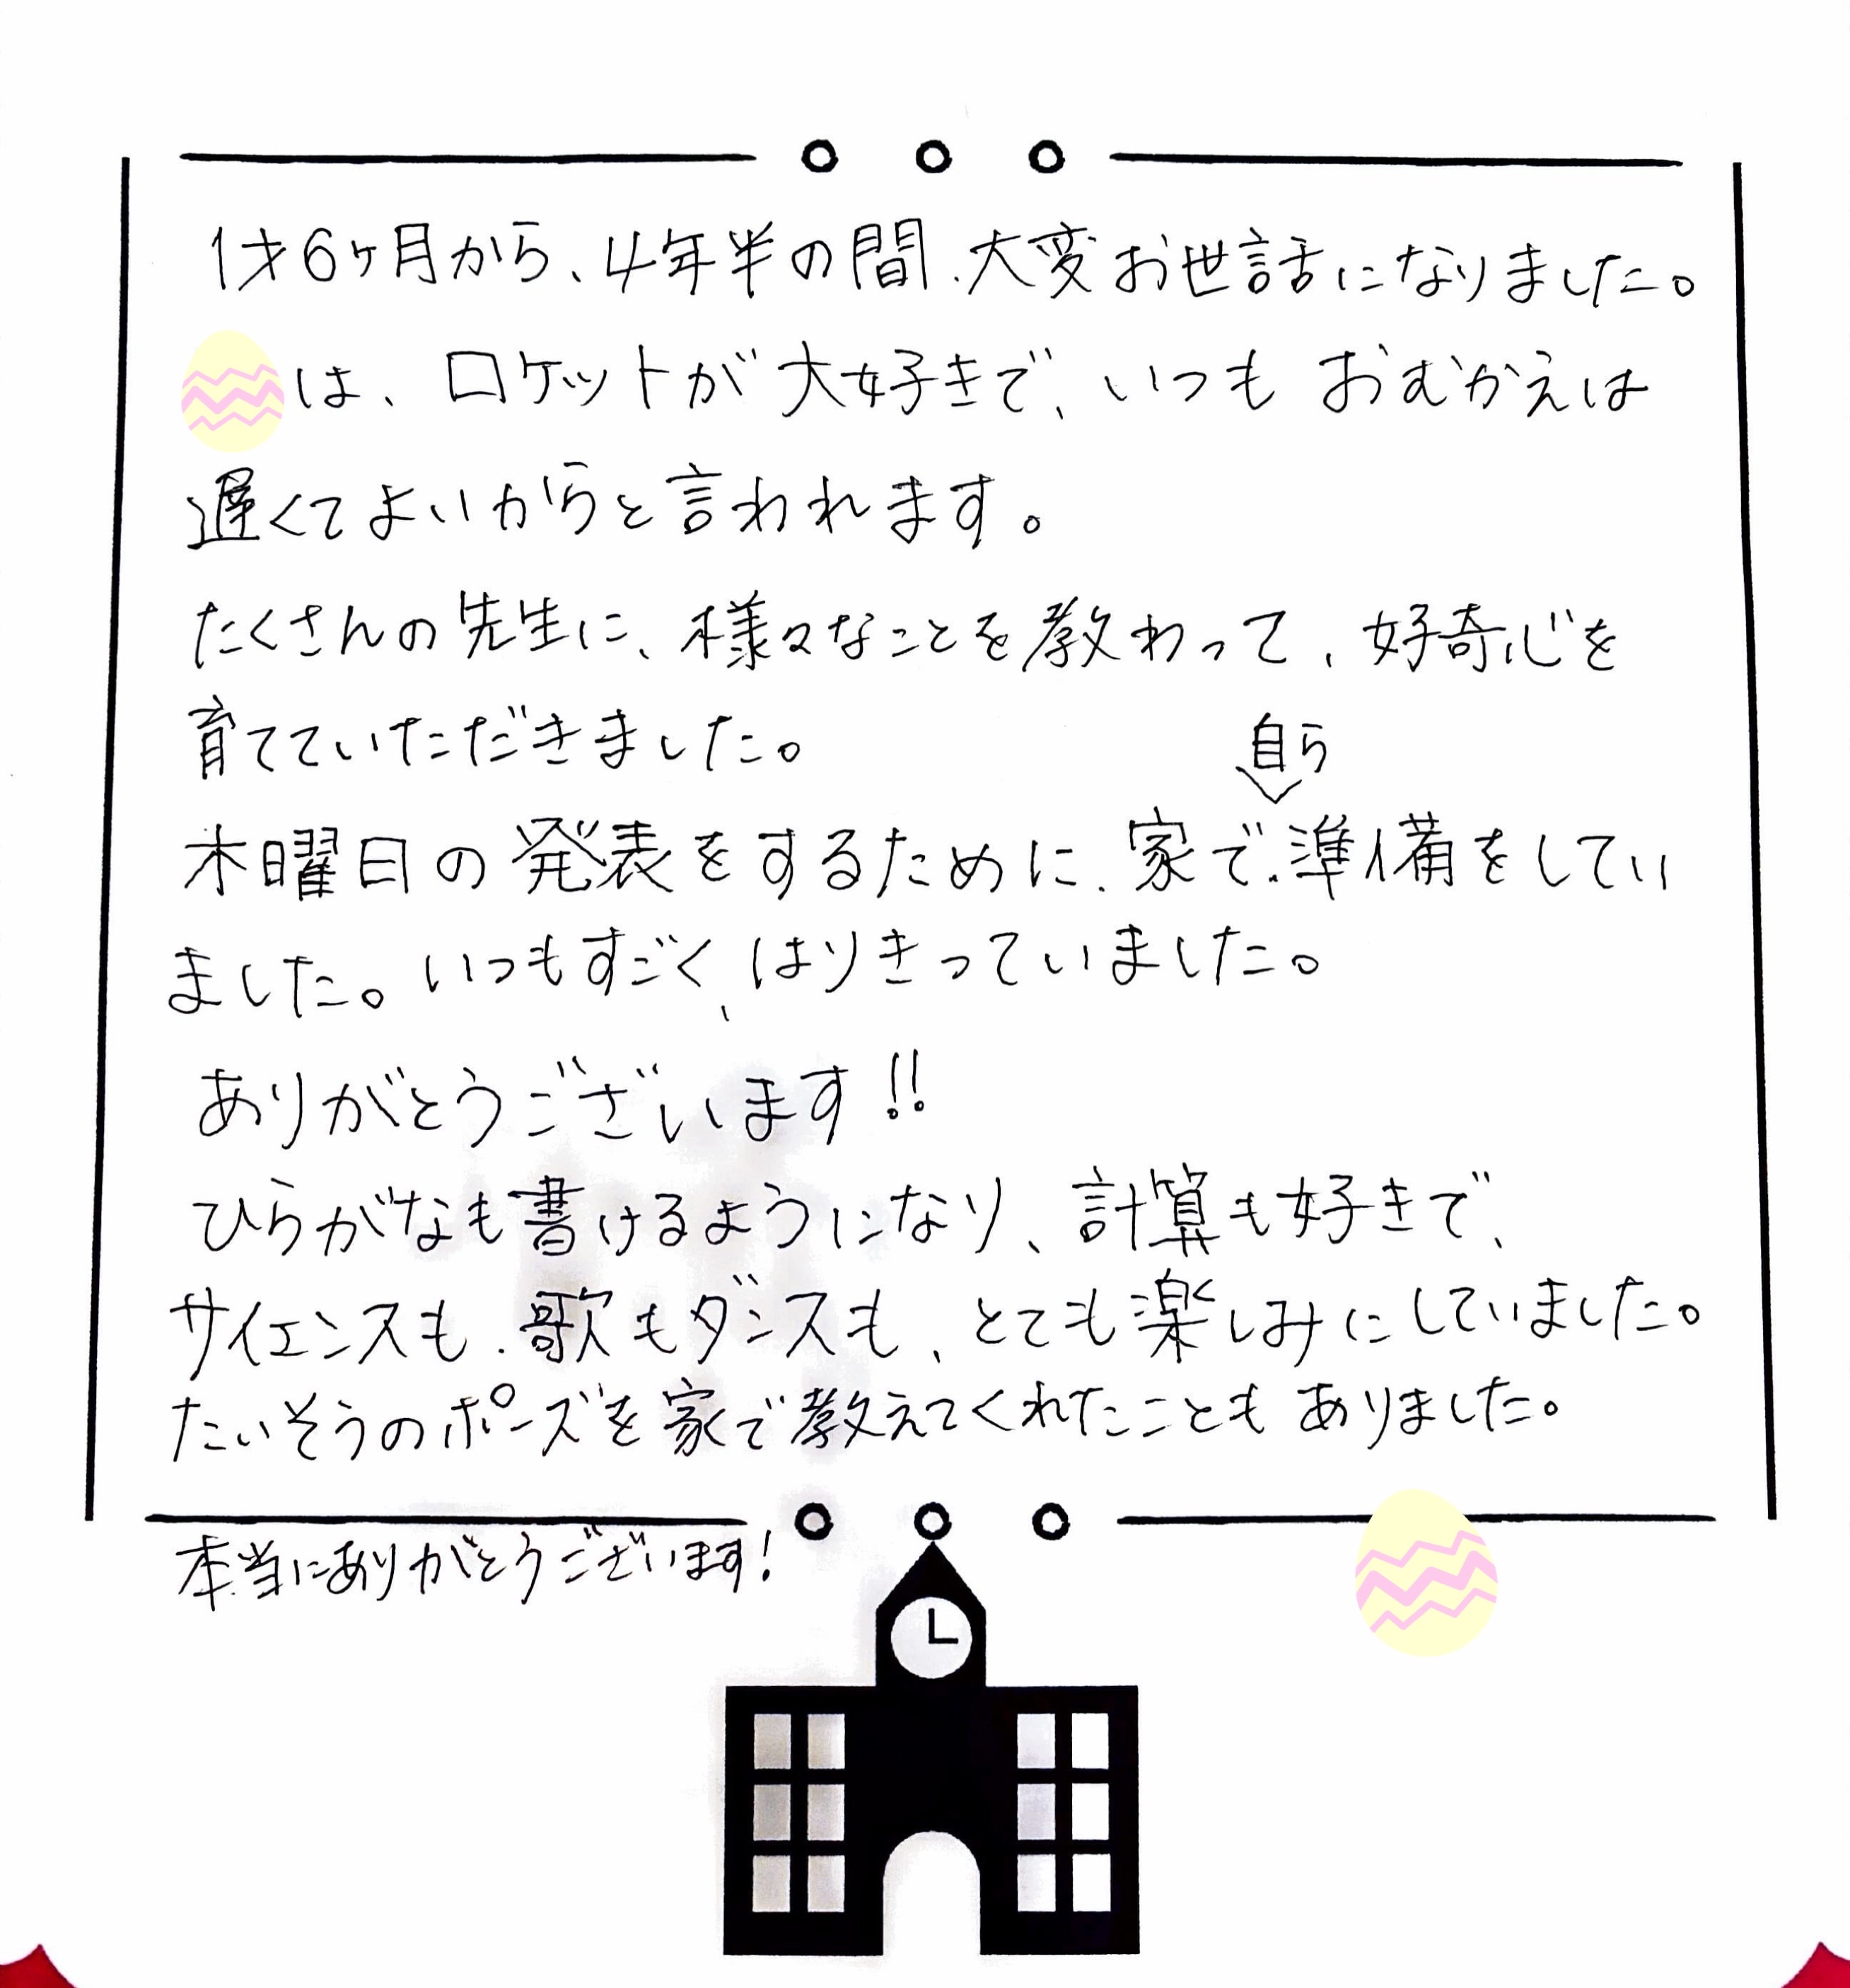 1才6ヶ月から、4年半の間、大変お世話になりました。
は、ロケットが大好きで、いつも おむかえは
遅くてよいからと言われます。
たくさんの先生に、様々なことを教わって、好奇心を
育てていただきました。
自ら
木曜日の発表をするために、家で、準備をしてい
ました。いつもすごく、はりきっていました。
ありがとうございます!!
ひらがなも書けるようになり、計算も好きで、
サイエンスも、歌もダンスも、とても楽しみにしていました。
たいそうのポーズを家で教えてくれたこともありました。
本当にありがとうございます!